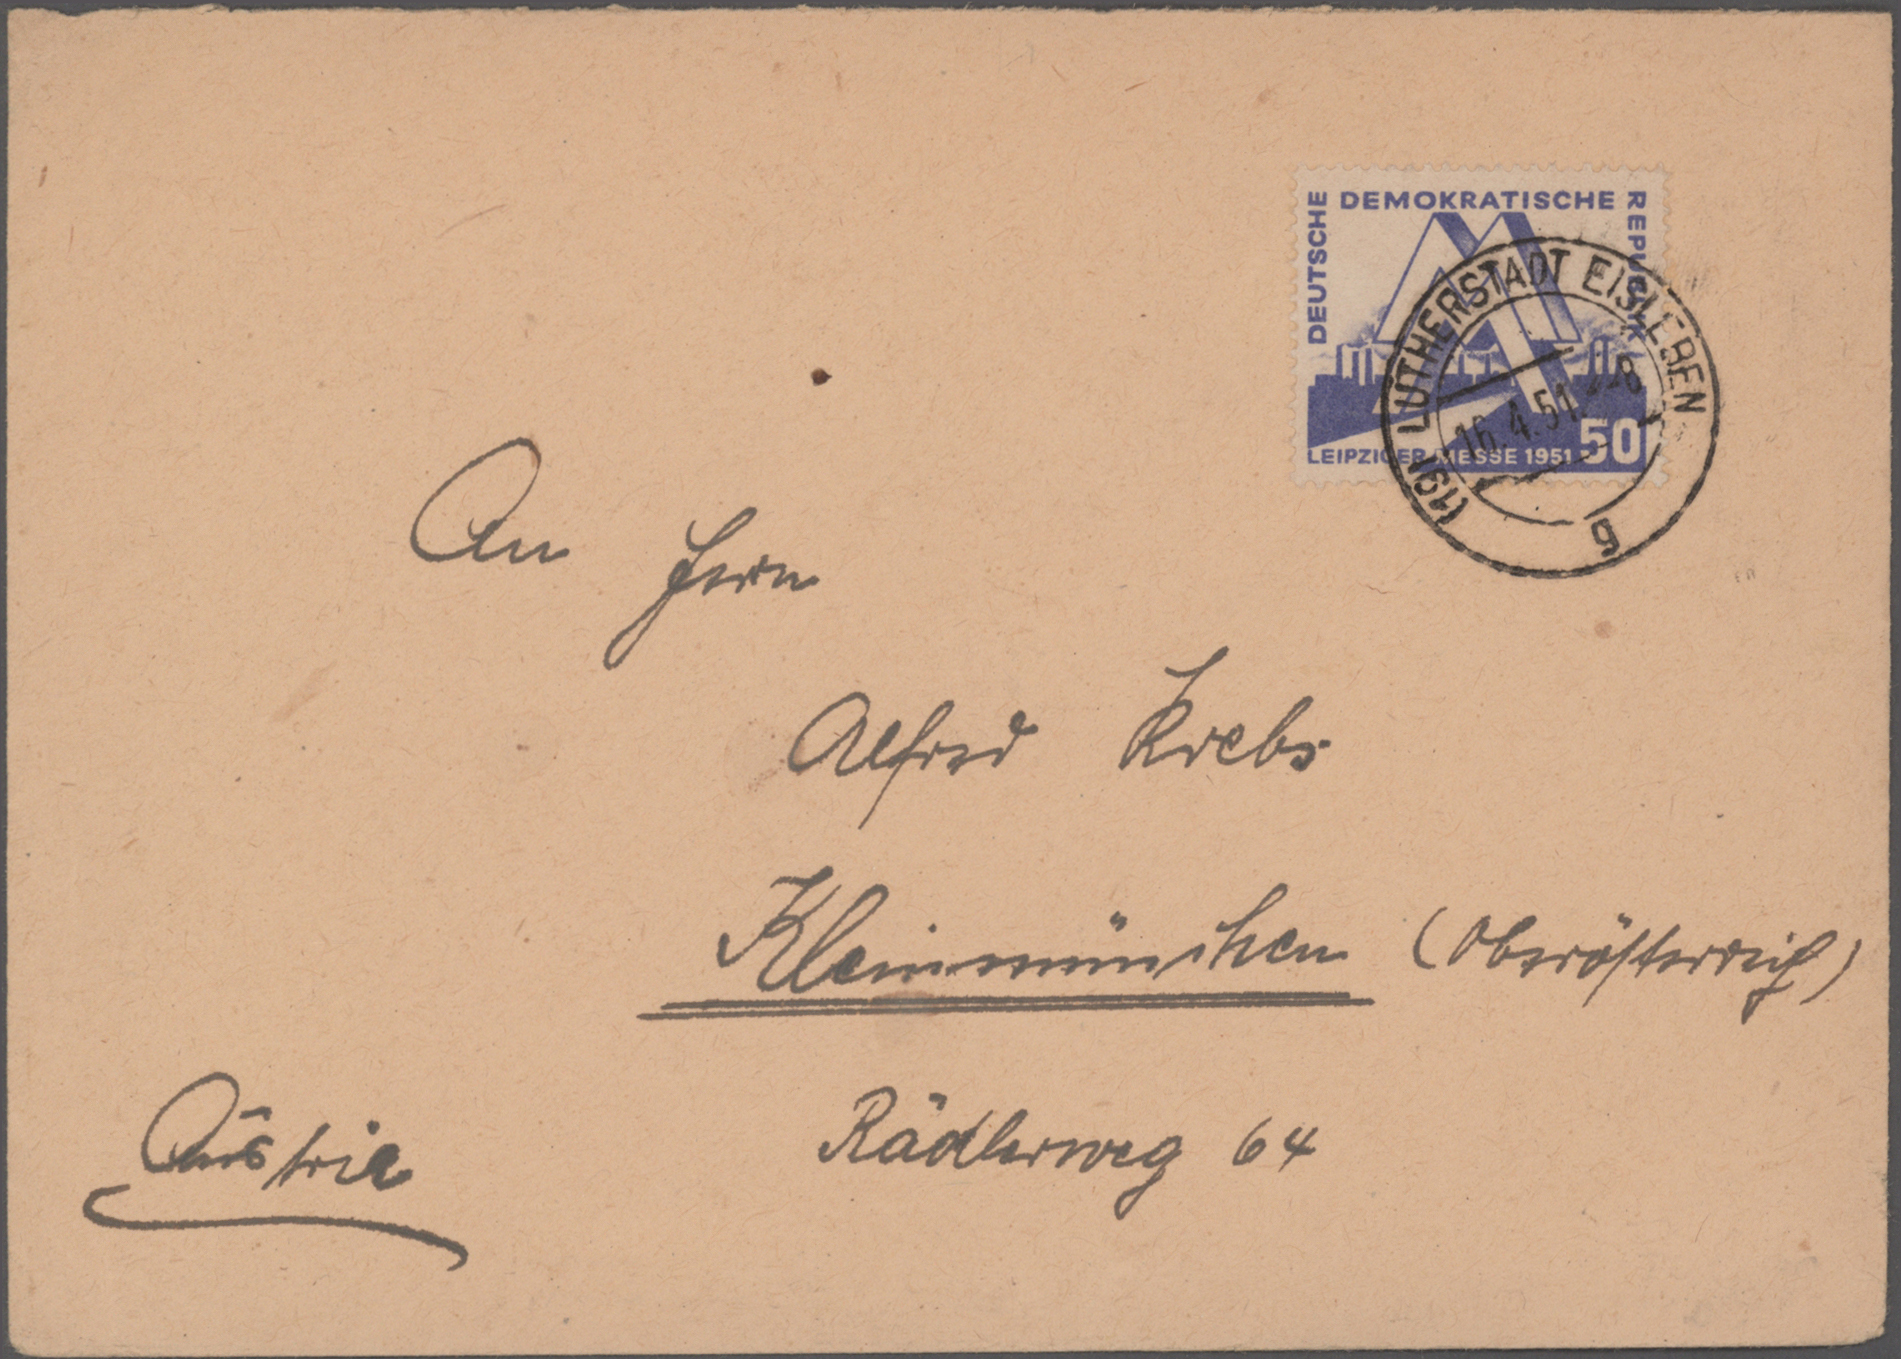 DEUTSCHE DEMOKRATISCHE REPUBLIK
LEIPZIGER MESSE 1951 50
(19) LUTHERSTADT EISLEBEN
16.4.51. -8
g
An Herrn
Alfred Krebs
Kleinmünchen (Oberösterreich)
Rädlerweg 64
Austria